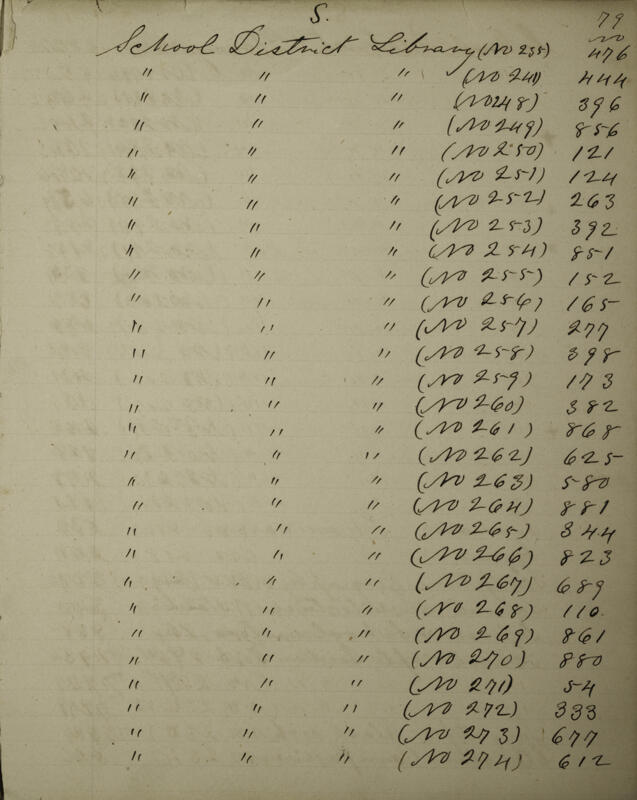 S.
79
No
School District Library (No 235) 476
" " " (No 241) 444
" " " (No 248) 396
" " " (No 249) 856
" " " (No 250) 121
" " " (No 251) 124
" " " (No 252) 263
" " " (No 253) 392
" " " (No 254) 851
" " " (No 255) 152
" " " (No 256) 165
" " " (No 257) 277
" " " (No 258) 398
" " " (No 259) 173
" " " (No 260) 382
" " " (No 261) 868
" " " (No 262) 625
" " " (No 263) 580
" " " (No 264) 881
" " " (No 265) 344
" " " (No 266) 823
" " " (No 267) 689
" " " (No 268) 110
" " " (No 269) 861
" " " (No 270) 880
" " " (No 271) 54
" " " (No 272) 333
" " " (No 273) 677
" " " (No 274) 612